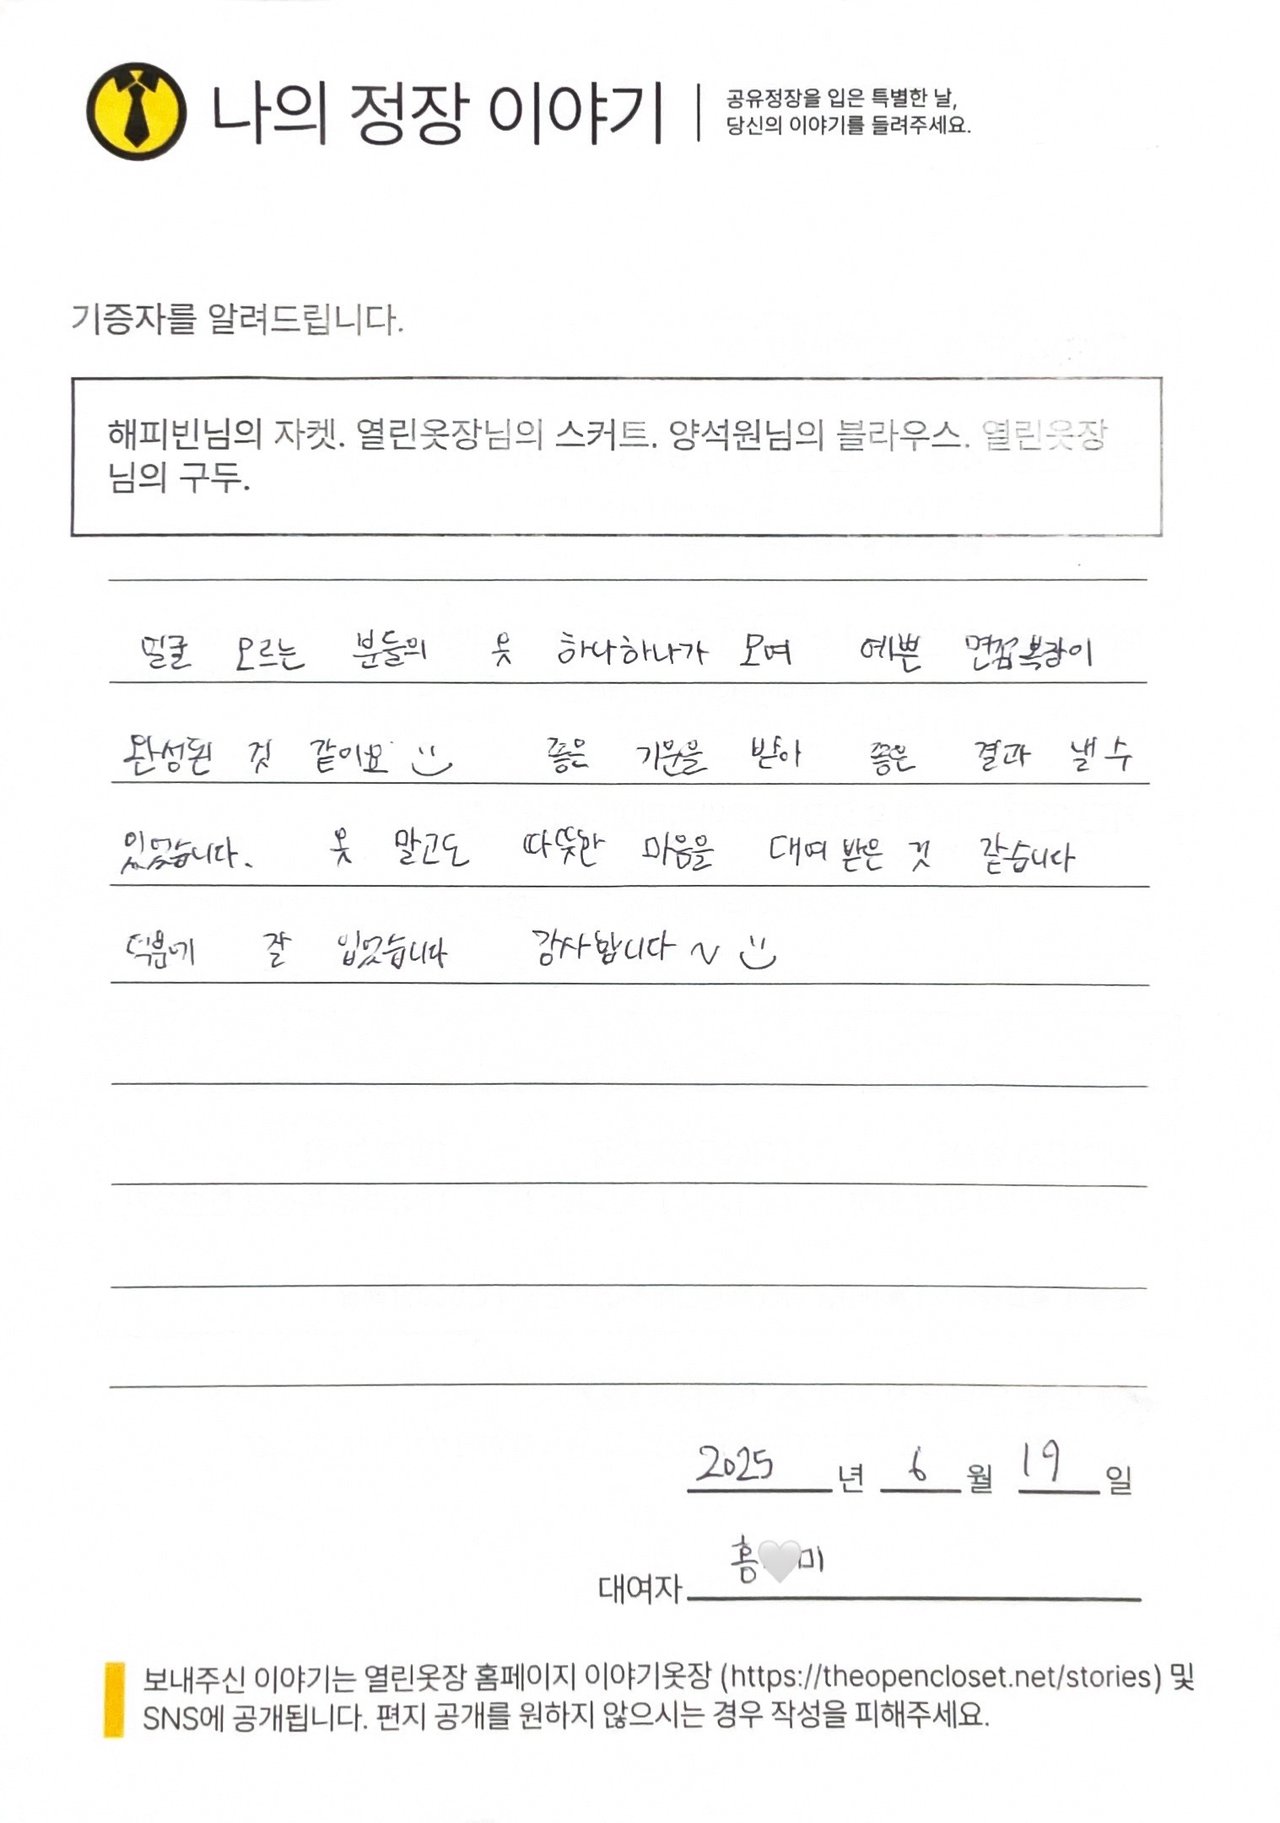 나의 정장 이야기
공유정장을 입은 특별한 날,
당신의 이야기를 들려주세요.
기증자를 알려드립니다.
해피빈님의 자켓. 열린옷장님의 스커트. 양석원님의 블라우스. 열린옷장
님의 구두.
얼굴 모르는 분들의 옷 하나하나가 모여 예쁜 면접복장이
완성된 것 같아요 좋은 기운을 받아 좋은 결과 낼 수
있었습니다. 옷 말고도 따뜻한 마음을 대여 받은 것 같습니다
덕분에 잘 입었습니다 감사합니다 ~
2025 년 6 월 19 일
대여자 홍 미
보내주신 이야기는 열린옷장 홈페이지 이야기옷장 (https://theopencloset.net/stories) 및
SNS에 공개됩니다. 편지 공개를 원하지 않으시는 경우 작성을 피해주세요.